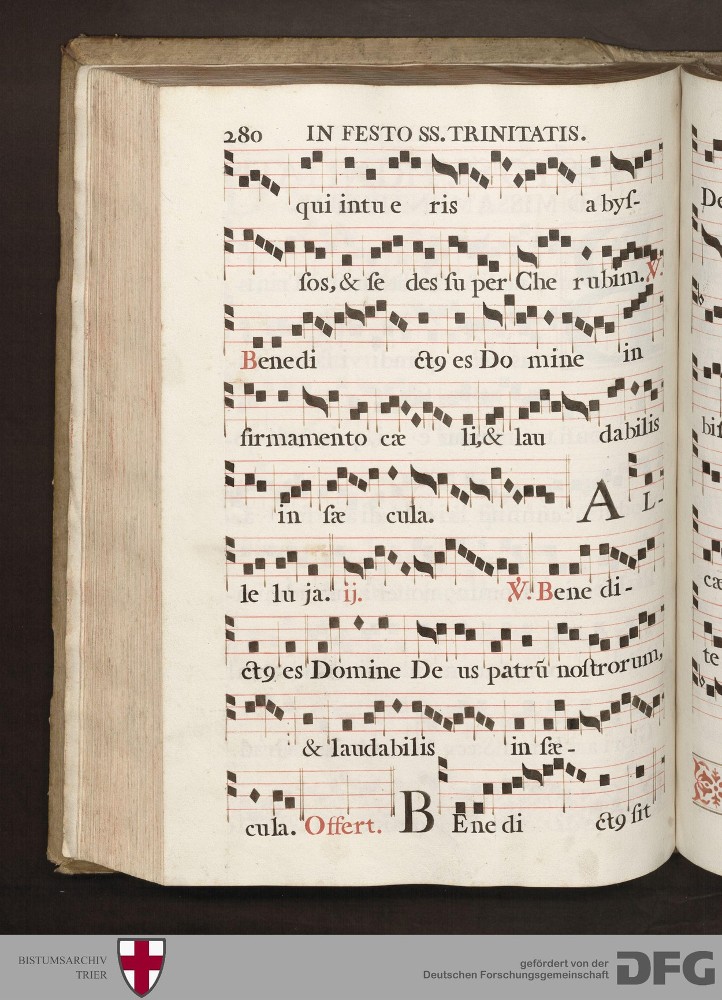 280 IN FESTO SS. TRINITATIS.
qui intu e ris a byſ-
ſos, & ſe des ſu per Che rubim. V.
Benedi ctꝰ es Do mine in
firmamento cæ li, & lau dabilis
in ſæ cula. A L-
le lu ja. ij. V̇. Bene di-
ctꝰ es Domine De us patrū noſtrorum,
& laudabilis in ſæ-
cula. Offert. B Ene di ctꝰ ſit
De
biſ
cæ
te
BISTUMSARCHIV
TRIER
gefördert von der
Deutschen Forschungsgemeinschaft
DFG